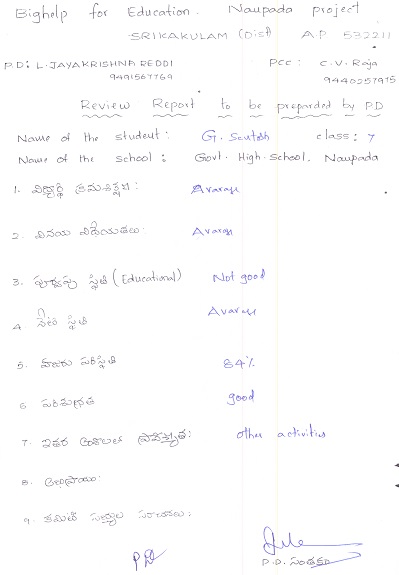 Bighelp for Education. Naupada project
SRIKAKULAM (Dist) A.P 532211
P.D: L. JAYAKRISHNA REDDI PCC: C.V. Raja
9491567769 9440257915
Review Report to be preparded by P.D
Name of the student: G. Santosh class: 7
Name of the school: Govt. High. School. Naupada
1. విద్యార్థి క్రమశిక్షణ: Avarage
2. వినయ విధేయతలు: Avarage
3. పూర్వపు స్థితి (Educational) Not good
4. నేటి స్థితి Avarage
5. హాజరు పరిస్థితి 84%
6 పరిశుభ్రత good
7. ఇతర అంశాలలో ప్రావీణ్యత: other activities
8. అభిప్రాయం:
9. కమిటీ సభ్యుల సూచనలు:
PD P.D. సంతకం